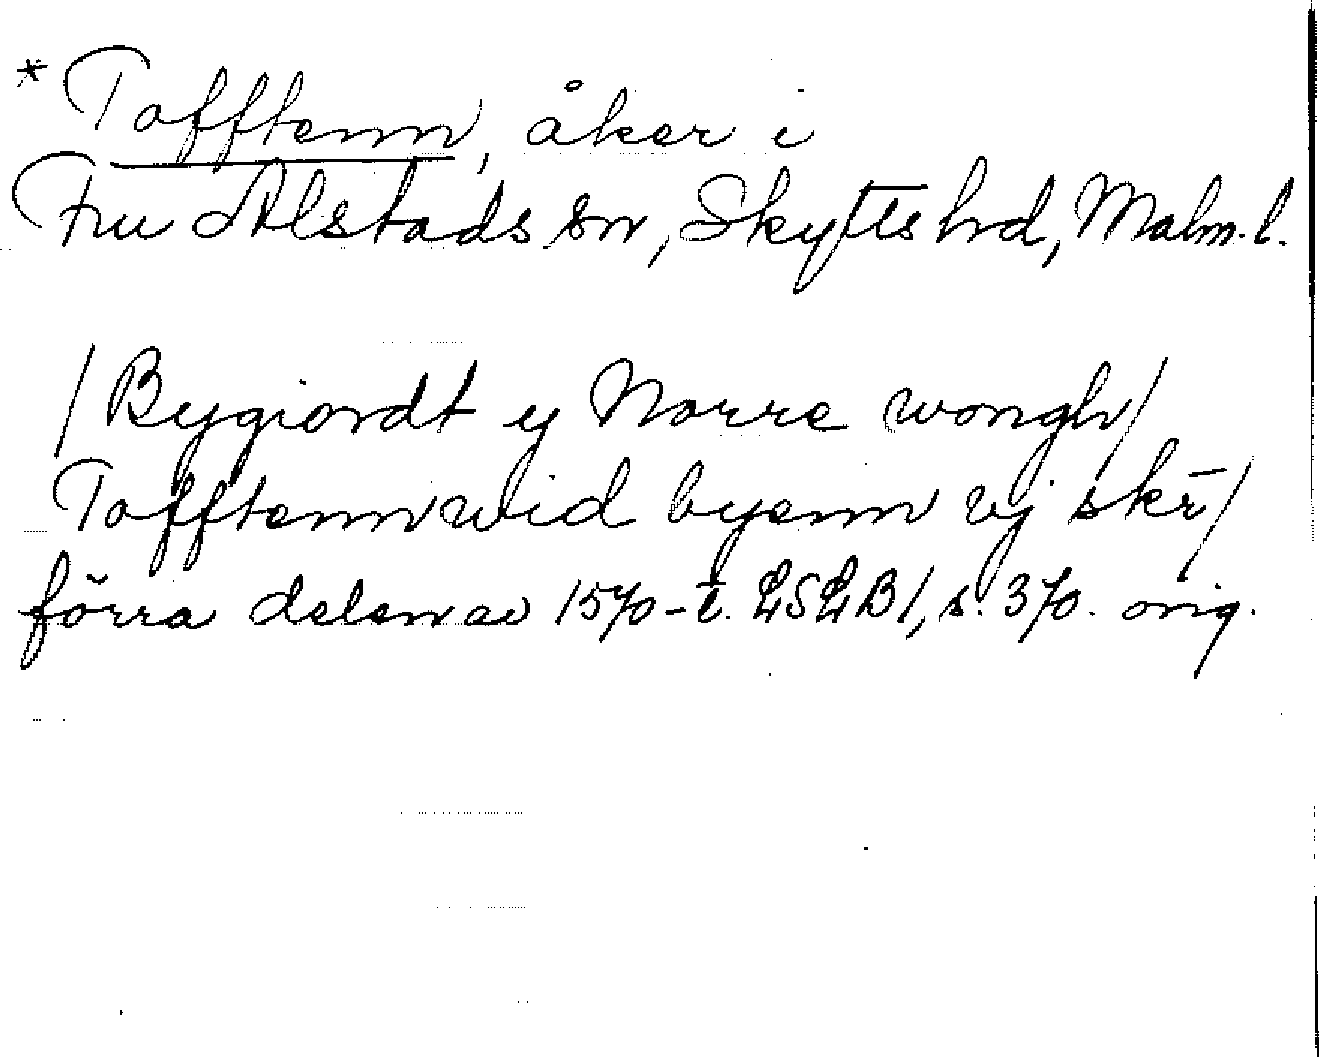 * Tofftenn, åker i
Fru Alstads sn, Skytts hd, Malm. l.
/Bygiordt y Norre wongh/
Tofftenn wid byenn vj skr/
förra delen av 1570-t. LSLB 1, s. 370. orig.